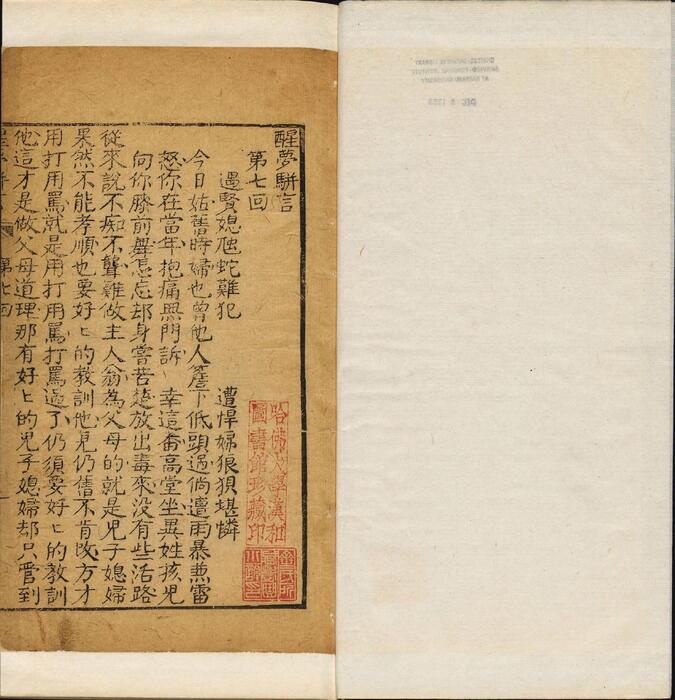 醒夢駢言
第七回
遇賢媳虺蛇難犯 遭悍婦狼狽堪憐
今日姑舊時婦也曾他人簷下低頭過倘遭雨暴兼雷
怒你在當年抱痛無門訴 幸這番高堂坐異姓孩児
向你膝前舞怎忘却身嘗苦楚放出毒來没有些活路
從來說不痴不聾難做主人翁為父母的就是児子媳婦
果然不能孝順也要好匕的教訓他見仍舊不肯改方才
用打用罵就是用打用罵打罵過了仍須要好匕的教訓
他這才是做父母道理那有好匕的児子媳婦却只管到
第七回
哈佛大學漢和
圖書館珍藏印
DEC 8 1953